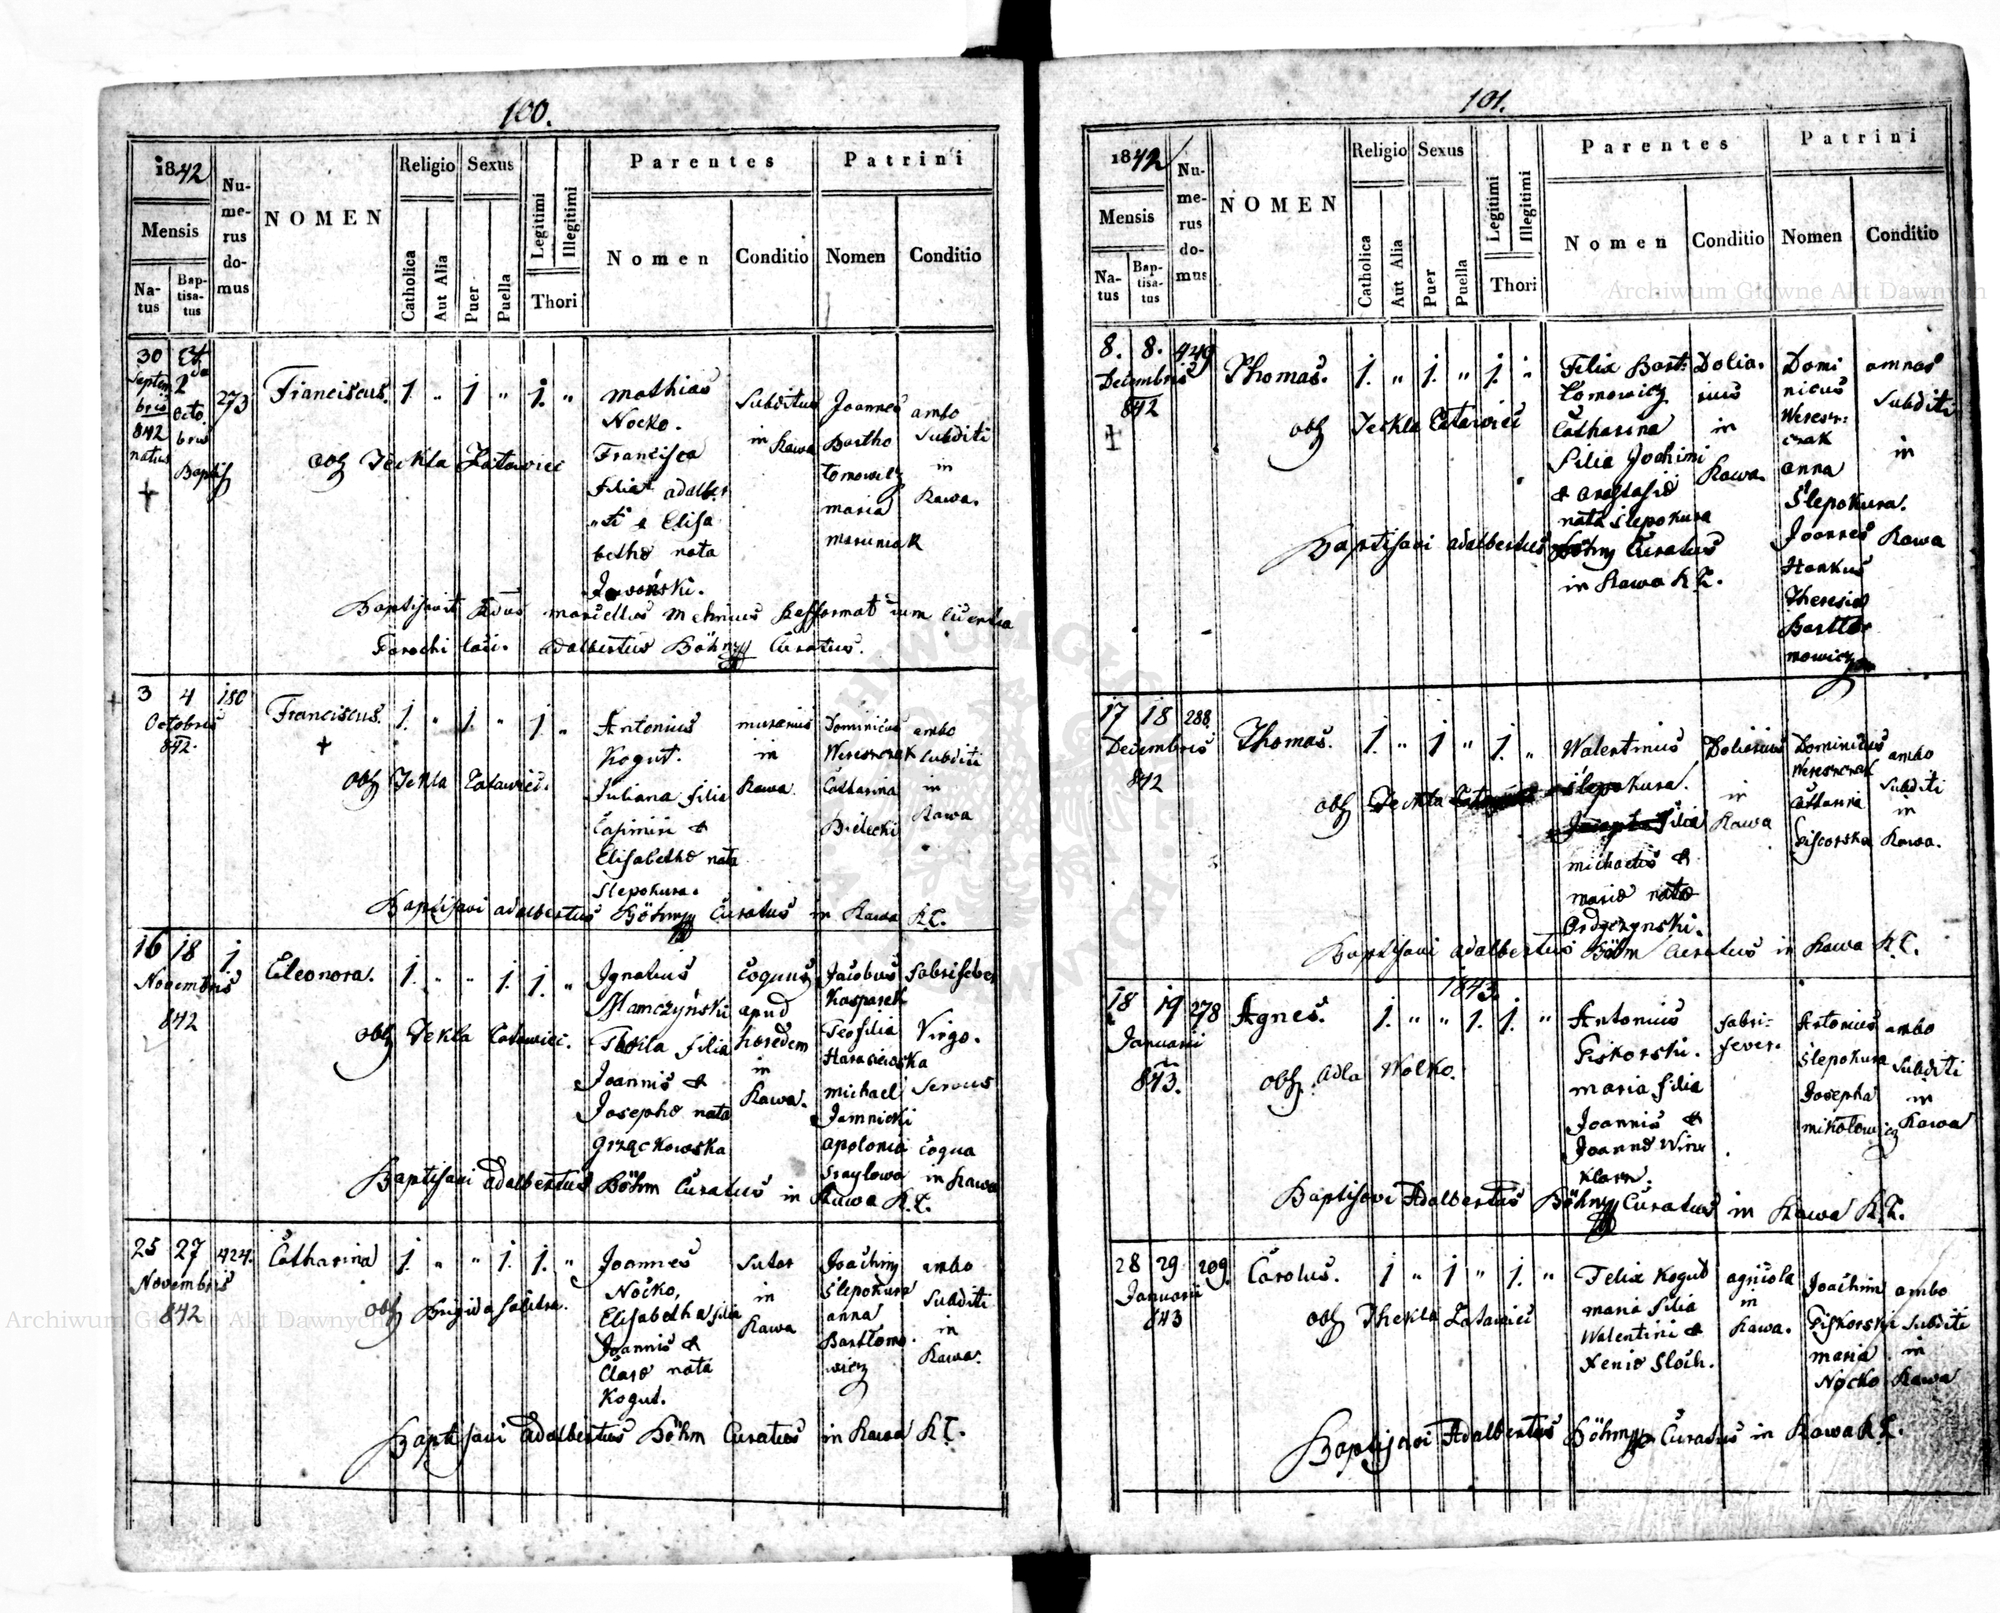 100.
1842
Mensis
Natus
Baptisatus
Numerus domus
NOMEN
Religio
Catholica
Aut Alia
Sexus
Puer
Puella
Legitimi
Illegitimi
Thori
Parentes
Nomen
Conditio
Patrini
Nomen
Conditio
30
Septem
bris
842
natus
2da
octo
bris
Baptis
273
Franciscus.
1. " 1 " 1. "
obs Teckla
Mathias
Nocko.
Francisca
Filia adalber
ti & Elisa
bethæ nata
Subditus
in Rawa
Joannes
Bartho
lomowicz
maria
maruniak
ambo
Subditi
in
Rawa.
Baptisavit
Parochi loci. Adalbertus Böhm Curatus.
3 4 180
Octobris
842.
Franciscus.
1. " 1 " 1. "
obs Tekla
Antonius
Kogut.
Juliana filia
Casimiri &
Elisabethæ nata
Slepokura.
murarius
in
Rawa
Dominicus
Wereszczak
Catharina
Bielecki
ambo
Subditi
in
Rawa
Baptisavi Adalbertus Böhm Curatus in Rawa
16 18 1
Novembris
842
Eleonora.
1. " " 1. 1. "
obs Tekla
Ignatius
Thekla filia
Joannis &
Josephæ nata
Grząckowska
coquus
apud
hæredem
in
Rawa.
Jacobus
Kasparek
Teofilia
michael
Jamnicki
apolonia
Virgo.
Servus
Coqua
in Rawa
Baptisavi Adalbertus Böhm Curatus in Rawa
25 27 424.
Novembris
842
Catharina
1. " " 1. 1. "
obs Brigida
Joannes
Nocko,
Elisabetha filia
Joannis &
Claræ nata
Kogut.
Sutor
in
Rawa
Joachim
Slepokura
anna
Bartlomo
wicz
ambo
Subditi
in
Rawa.
Baptisavi Adalbertus Böhm Curatus in Rawa
101.
1842
Mensis
Natus
Baptisatus
Numerus domus
NOMEN
Religio
Catholica
Aut Alia
Sexus
Puer
Puella
Legitimi
Illegitimi
Thori
Parentes
Nomen
Conditio
Patrini
Nomen
Conditio
8. 8. 449
Decembris
842
Thomas.
1. " 1. " 1. "
obs Teckla
Felix Bart
lomowicz
Catharina
filia Jochimi
& anastasiæ
nata Slepokura
Dolia
rius
in
Rawa.
Domi
nicus
Weresz
czak
anna
Slepokura.
Joannes
Hankus
Theresia
Bartlo
mowicz
Subditi
in
Rawa
Baptisavi adalbertus Böhm Curatus
in Rawa
17 18 288.
Decembris
842
Thomas.
1. " 1 " 1. "
obs Teckla
Walentinus
Slepokura.
filia
michaelis &
mariæ nata
Doliarius
in
Rawa
Dominicus
Wereszczak
Catharina
Piscorska
ambo
Subditi
in
Rawa.
Baptisavi Adalbertus Böhm Curatus in Rawa
1843.
18 19 278
Januarii
843.
Agnes.
1. " " 1. 1. "
obs. Adla Wolko.
Antonius
Piskorski.
maria filia
Joannis &
Joannæ
Antonius
Slepokura
Josepha
mikolowicz
ambo
Subditi
in
Rawa
Baptisavi Adalbertus Böhm Curatus in Rawa
28 29 209.
Januarii
843
Carolus.
1 " 1 " 1. "
obs Thekla
Felix Kogud
maria filia
Walentini &
Xeniæ Sloch.
agricola
in
Rawa.
Joachim
Piskorski
maria
Nocko
ambo
Subditi
in
Rawa
Baptisavi Adalbertus Böhm Curatus in Rawa
Archiwum Główne Akt Dawnych
Archiwum Główne Akt Dawnych